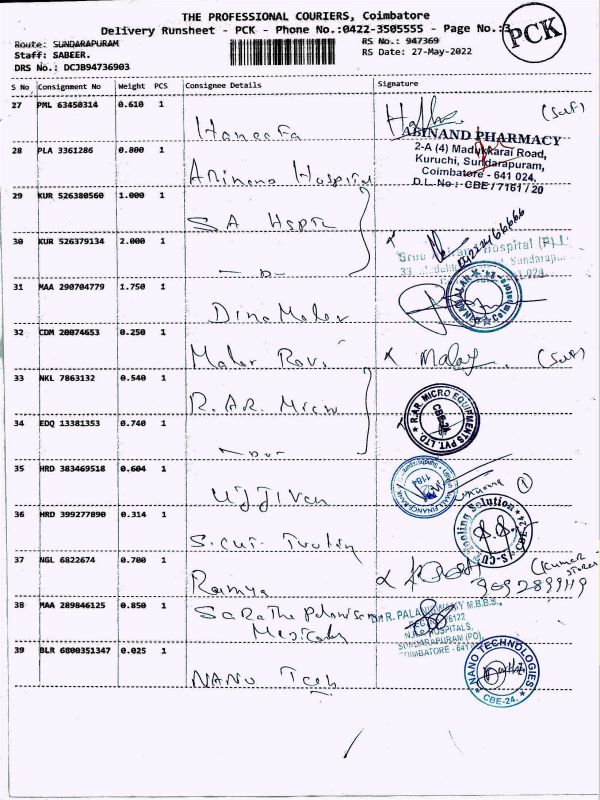 THE PROFESSIONAL COURIERS, Coimbatore
Delivery Runsheet - PCK - Phone No.:0422-3505555 - Page No.:3
PCK
Route: SUNDARAPURAM
RS No.: 947369
Staff: SABEER.
RS Date: 27-May-2022
DRS No.: DCJB94736903
S No Consignment No Weight PCS Consignee Details Signature
27 PML 63450314 0.610 1 Haneefa (Self)
ABINAND PHARMACY
2-A (4) Madukkarai Road,
Kuruchi, Sundarapuram,
Coimbatore - 641 024.
D.L. No:- CBE / 7161 / 20
28 PLA 3361286 0.800 1 Abinand Hospital
29 KUR 526380560 1.000 1 S A
30 KUR 526379134 2.000 1
Hospital (P)
31 MAA 290704779 1.750 1 Dinamalar
DINAMALAR Coimbatore-24
32 CDM 20074653 0.250 1 (Self)
33 NKL 7863132 0.540 1 R. AR. Micro
R.AR. MICRO EQUIPMENTS PVT. LTD.
CBE-24.
34 EDQ 13381353 0.740 1
35 HRD 383469518 0.604 1 Ujjivan
36 HRD 399277890 0.314 1 S.CUT. Tooling
S-CUT Tooling Solution CBE-24
37 NGL 6822674 0.700 1 Ramya (Kumar
stores
9092899119
38 MAA 289846125 0.850 1
Dr. R. PALANISWAMY M.B.B.S.,
HOSPITALS,
SUNDARAPURAM (PO),
COIMBATORE - 641
39 BLR 6800351347 0.025 1 NANO Tech
NANO TECHNOLOGIES
CBE-24.